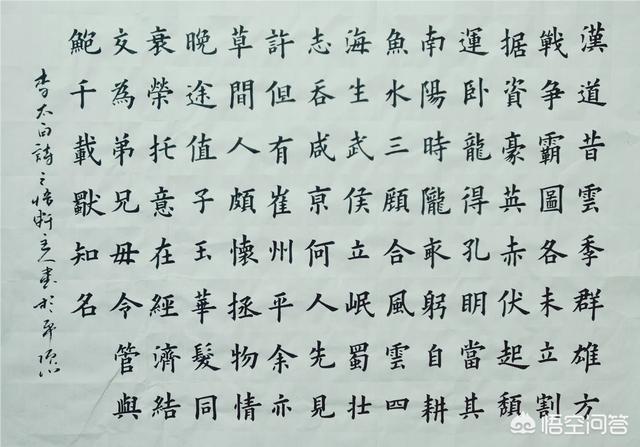 漢道昔雲季群雄方
戰争霸圖各未立割
据資豪英赤伏起頹
運卧龍得孔明當其
南陽時隴畝躬自耕
魚水三顧合風雲四
海生武侯立岷蜀壮
志吞咸京何人先見
許但有崔州平余亦
草間人頗懷拯物情
晚途值子玉華髮同
衰榮托意在經濟結
交為弟兄毋令管與
鮑千載獸知名
李太白詩之悟軒主人書於平
悟空问答